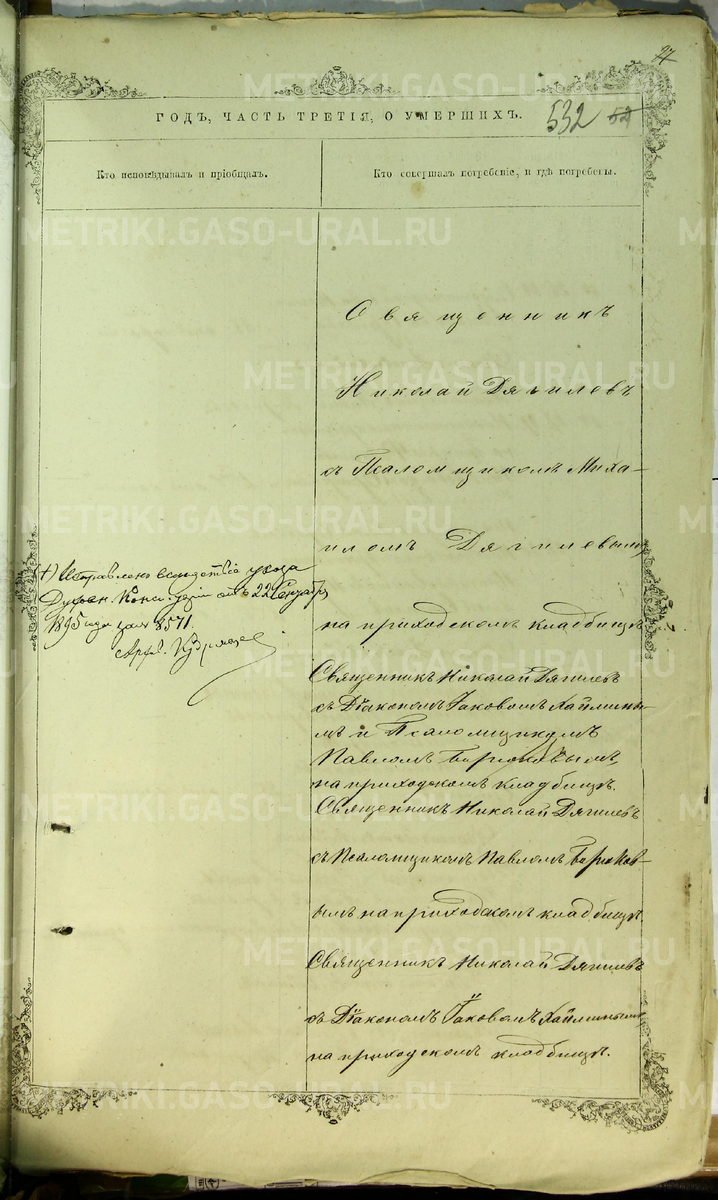 27
ГОДЪ, ЧАСТЬ ТРЕТІЯ, О УМЕРШИХЪ.
532 52
Кто исповѣдывалъ и пріобщалъ.
Кто совершалъ погребеніе, и гдѣ погребены.
Священникъ
Николай Дягилевъ
съ Псаломщикомъ Миха-
иломъ Дягилевымъ
на приходскомъ кладбищѣ
+) Исправлено вслѣдствіе указа
Духовн. Конс. отъ 22 Сентября
1895 года за № 8571.
Священникъ Николай Дягилевъ
съ Діакономъ Іаковомъ Хайлины-
мъ и Псаломщикомъ
Павломъ Бирюковымъ,
на приходскомъ кладбищѣ.
Священникъ Николай Дягилевъ
съ Псаломщикомъ Павломъ Бирюков-
ымъ на приходскомъ кладбищѣ.
Священникъ Николай Дягилевъ
съ Діакономъ Іаковомъ Хайлинымъ
на приходскомъ кладбищѣ.
METRIKI.GASO-URAL.RU